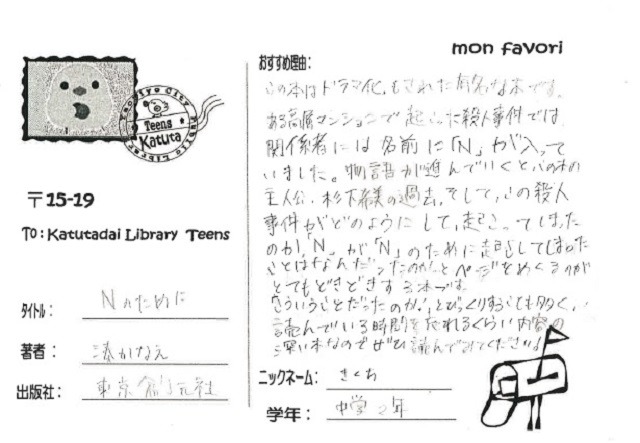 mon favori
Yachiyo City Public Library
Teens
Katuta
〒15-19
TO : Katutadai Library Teens
タイトル： Nのために
著者： 湊かなえ
出版社： 東京創元社
おすすめ理由：
この本はドラマ化もされた有名な本です。
ある高層マンションで起こった殺人事件では、
関係者には名前に「N」が入って
いました。物語が進んでいくと、この本の
主人公、杉下希美の過去、そして、この殺人
事件がどのようにして、起こってしまった
のか、「N」が「N」のために起こしてしまった
ことはなんだったのか、とページをめくるのが
とてもどきどきする本です。
そういうことだったのか！、とびっくりすることも多く、
読んでいる時間を忘れるくらい内容の
深い本なのでぜひ読んでみてください。
ニックネーム： きくち
学年： 中学2年